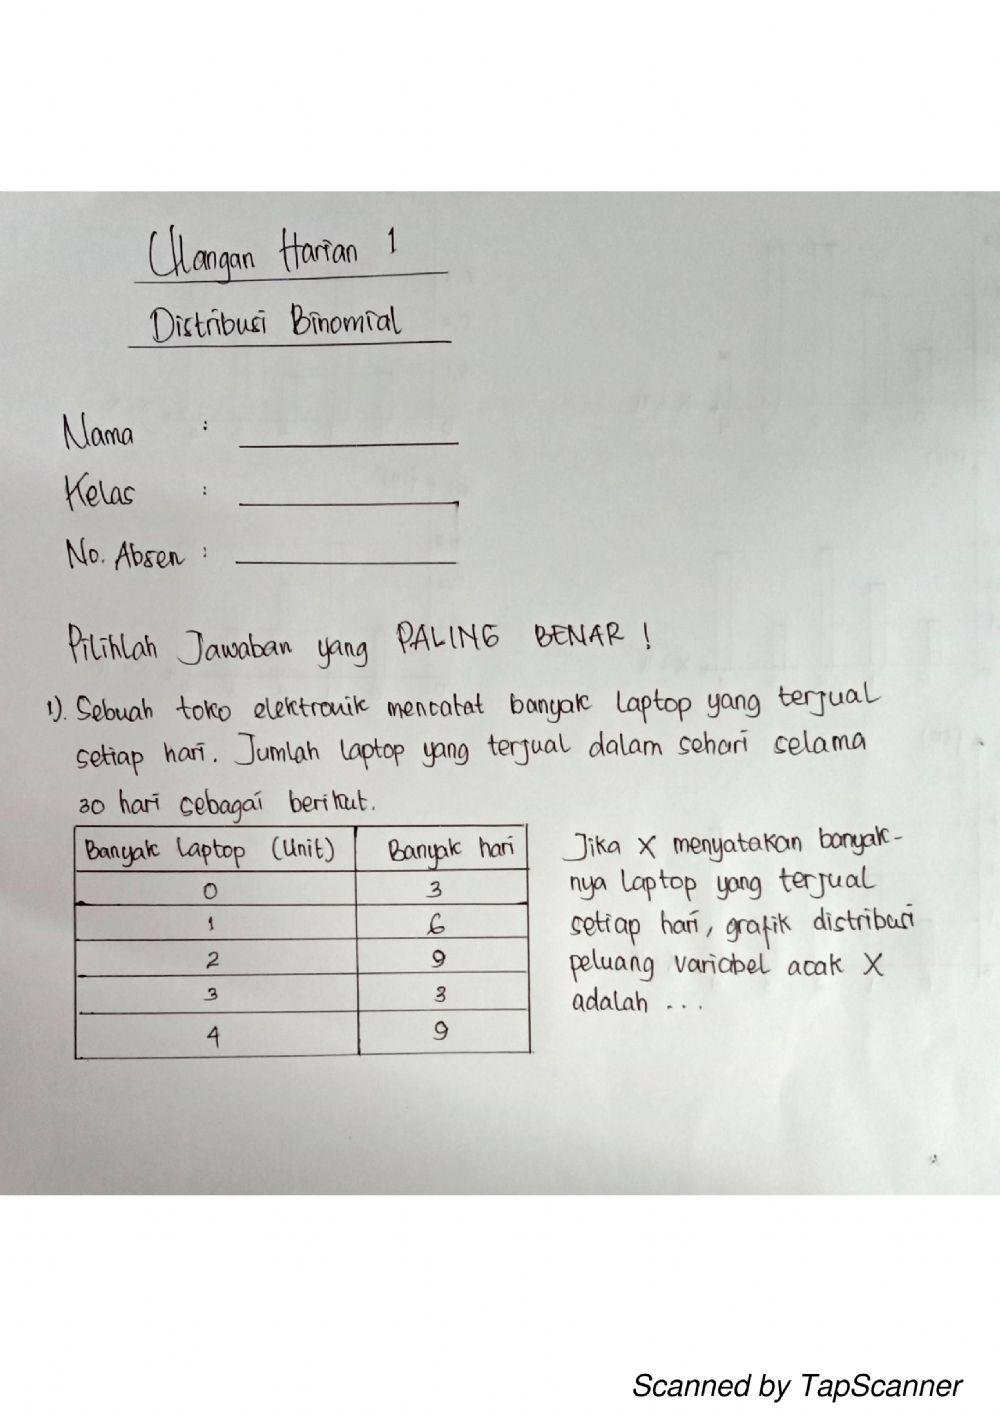 Ulangan Harian 1
Distribusi Binomial
Nama :
Kelas :
No. Absen :
Pilihlah Jawaban yang PALING BENAR !
1). Sebuah toko elektronik mencatat banyak laptop yang terjual
setiap hari. Jumlah laptop yang terjual dalam sehari selama
30 hari sebagai berikut.
Banyak laptop (Unit) Banyak hari
0 3
1 6
2 9
3 3
4 9
Jika X menyatakan banyak-
nya laptop yang terjual
setiap hari, grafik distribusi
peluang variabel acak X
adalah ...
Scanned by TapScanner